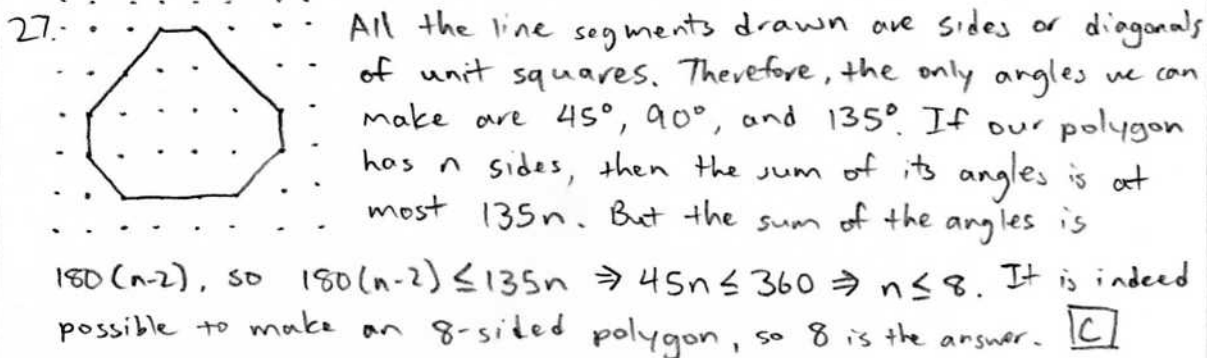 27. All the line segments drawn are sides or diagonals
of unit squares. Therefore, the only angles we can
make are 45°, 90°, and 135°. If our polygon
has n sides, then the sum of its angles is at
most 135n. But the sum of the angles is
180(n-2), so 180(n-2) ≤ 135n ⇒ 45n ≤ 360 ⇒ n ≤ 8. It is indeed
possible to make an 8-sided polygon, so 8 is the answer. C